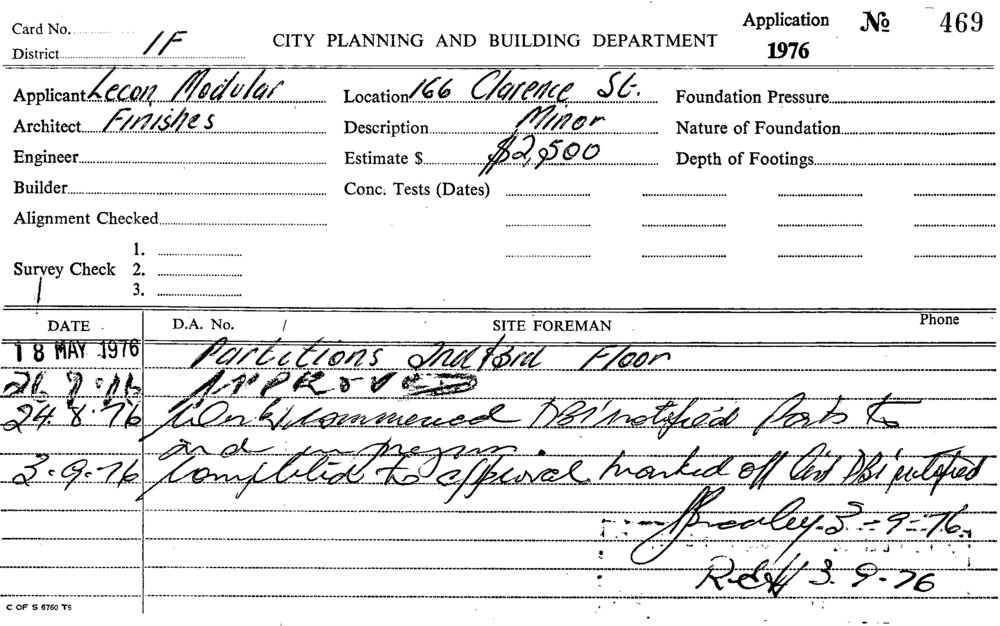 Card No. Application № 469
District 1F CITY PLANNING AND BUILDING DEPARTMENT 1976
Applicant Lecon Modular Location 166 Clarence St. Foundation Pressure
Architect Finishes Description Minor Nature of Foundation
Engineer Estimate $ $2,500 Depth of Footings
Builder Conc. Tests (Dates)
Alignment Checked
1.
Survey Check 2.
3.
DATE D.A. No. / SITE FOREMAN Phone
18 MAY 1976 Partitions 2nd & 3rd Floor
APPROVED
24.8.76 Work commenced DBI notified
and in
3-9-76 Completed to approval marked off DBI notified
3-9-76
3.9.76
C OF S 6760 T6